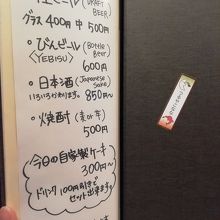 生ビール (DRAFT BEER)
グラス 400円 中 500円
・びんビール (Bottle Beer)
<YEBISU> 600円
・日本酒 (Japanese Sake)
いろいろあります。 850円~
・焼酎 (麦or芋)
500円
今日の自家製ケーキ
300円~
ドリンク 100円引きで
セット出来ます。